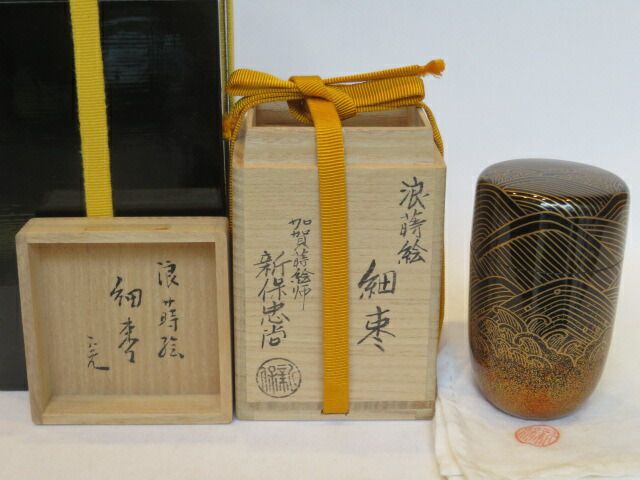 浪蒔絵
細棗
加賀蒔絵師
新保忠尚
浪蒔絵
細棗